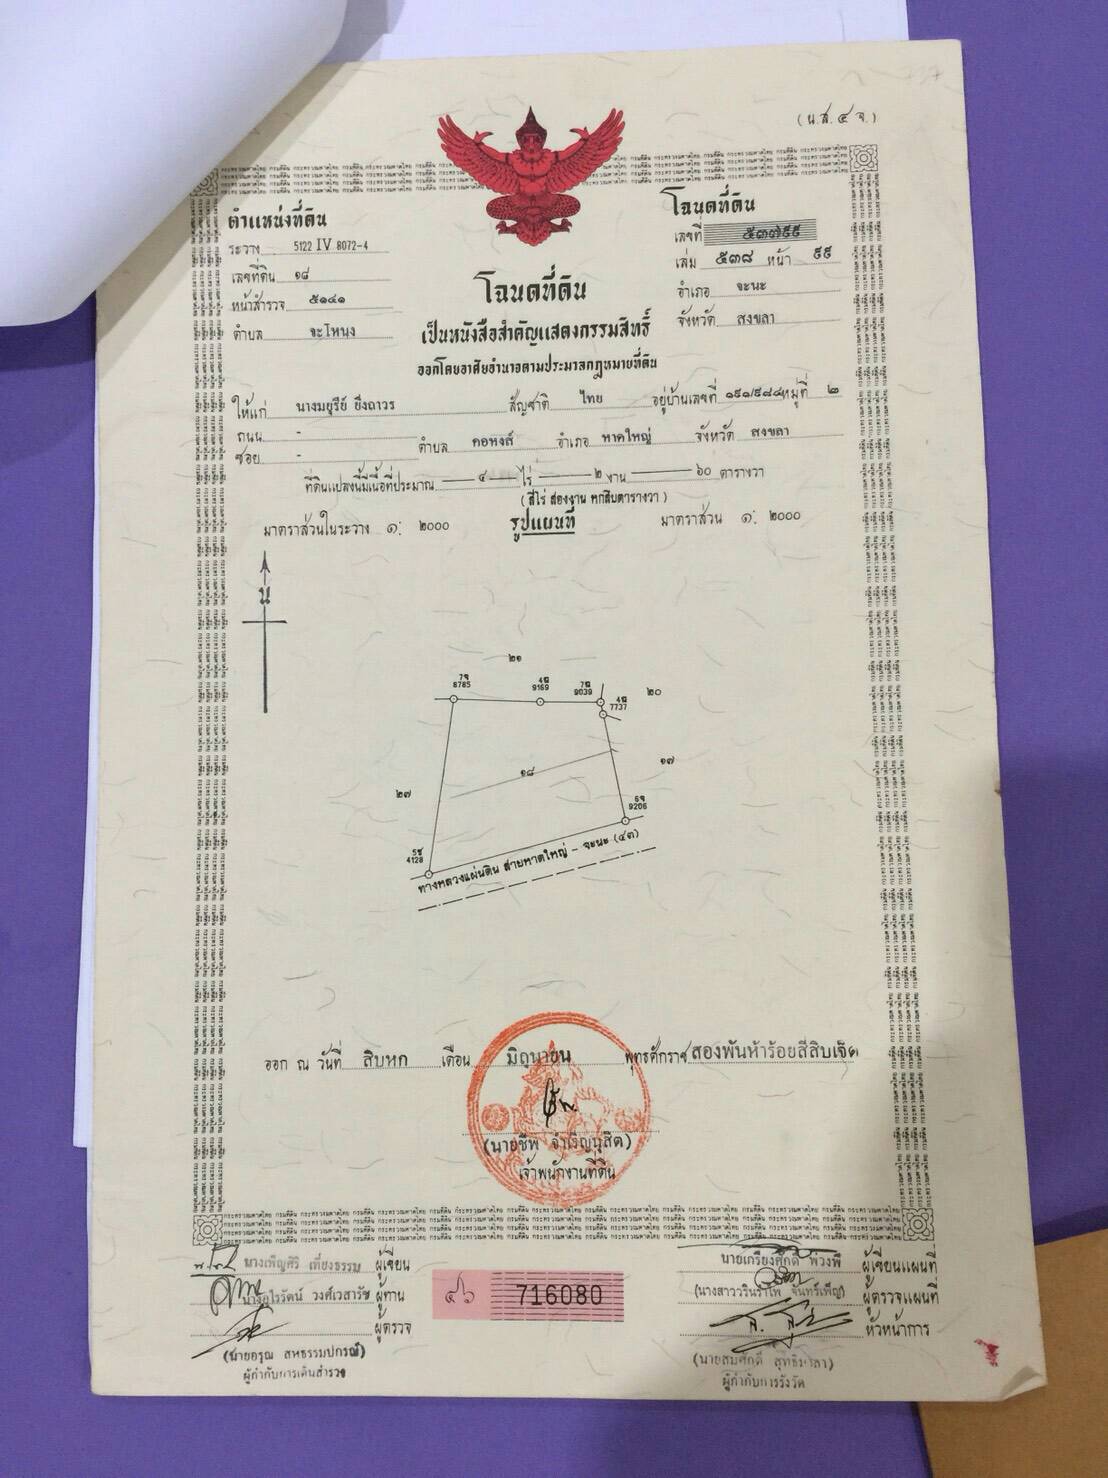 (น.ส. ๔ จ.)
ตำแหน่งที่ดิน
ระวาง 5122 IV 8072-4
เลขที่ดิน ๑๘
หน้าสำรวจ ๕๑๔๑
ตำบล จะโหนง
โฉนดที่ดิน
เลขที่ ๕๓๗๙๙
เล่ม ๕๓๘ หน้า ๙๙
อำเภอ จะนะ
จังหวัด สงขลา
โฉนดที่ดิน
เป็นหนังสือสำคัญแสดงกรรมสิทธิ์
ออกโดยอาศัยอำนาจตามประมวลกฎหมายที่ดิน
ให้แก่ นางมยุรีย์ ยิ่งถาวร สัญชาติ ไทย อยู่บ้านเลขที่ ๑๙๑/๙๘๘ หมู่ที่ ๒
ถนน - ตำบล คอหงส์ อำเภอ หาดใหญ่ จังหวัด สงขลา
ซอย -
ที่ดินแปลงนี้มีเนื้อที่ประมาณ ๔ ไร่ ๒ งาน ๖๐ ตารางวา
(สี่ไร่ สองงาน หกสิบตารางวา)
มาตราส่วนในระวาง ๑: ๒๐๐๐ รูปแผนที่ มาตราส่วน ๑: ๒๐๐๐
น
๒๑
8785
9169
9039
7737
๒๐
๑๘
๑๗
๒๗
9206
4128
ทางหลวงแผ่นดิน สายหาดใหญ่ - จะนะ (๔๓)
ออก ณ วันที่ สิบหก เดือน มิถุนายน พุทธศักราช สองพันห้าร้อยสี่สิบเจ็ด
(นายชีพ จำเริญนุสิต)
เจ้าพนักงานที่ดิน
นางเพ็ญศิริ เที่ยงธรรม ผู้เขียน
นางอุไรรัตน์ วงศ์เวสารัช ผู้ทาน
ผู้ตรวจ
(นายอรุณ สหธรรมปกรณ์)
ผู้กำกับการเดินสำรวจ
๔๖ 716080
นายเกรียงศักดิ์ พ่วงพี ผู้เขียนแผนที่
(นางสาววรินรำไพ จันทร์เพ็ญ) ผู้ตรวจแผนที่
หัวหน้าการ
ผู้กำกับการรังวัด